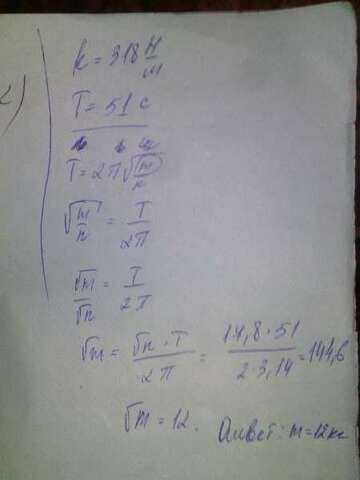 2)
k = 318 Н/м
T = 51 с
T = 2π√(m/k)
√(m/k) = T/2π
√m/√k = T/2π
√m = √k · T / 2π = 17,8 · 51 / 2 · 3,14 = 144,6
√m = 12. Ответ: m = 12 кг